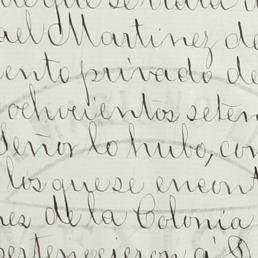 ael Martinez de
ento privado de
ochocientos seten
Señor lo hubo, con
los que se encont
res de la Colonia
pertenecieron á S